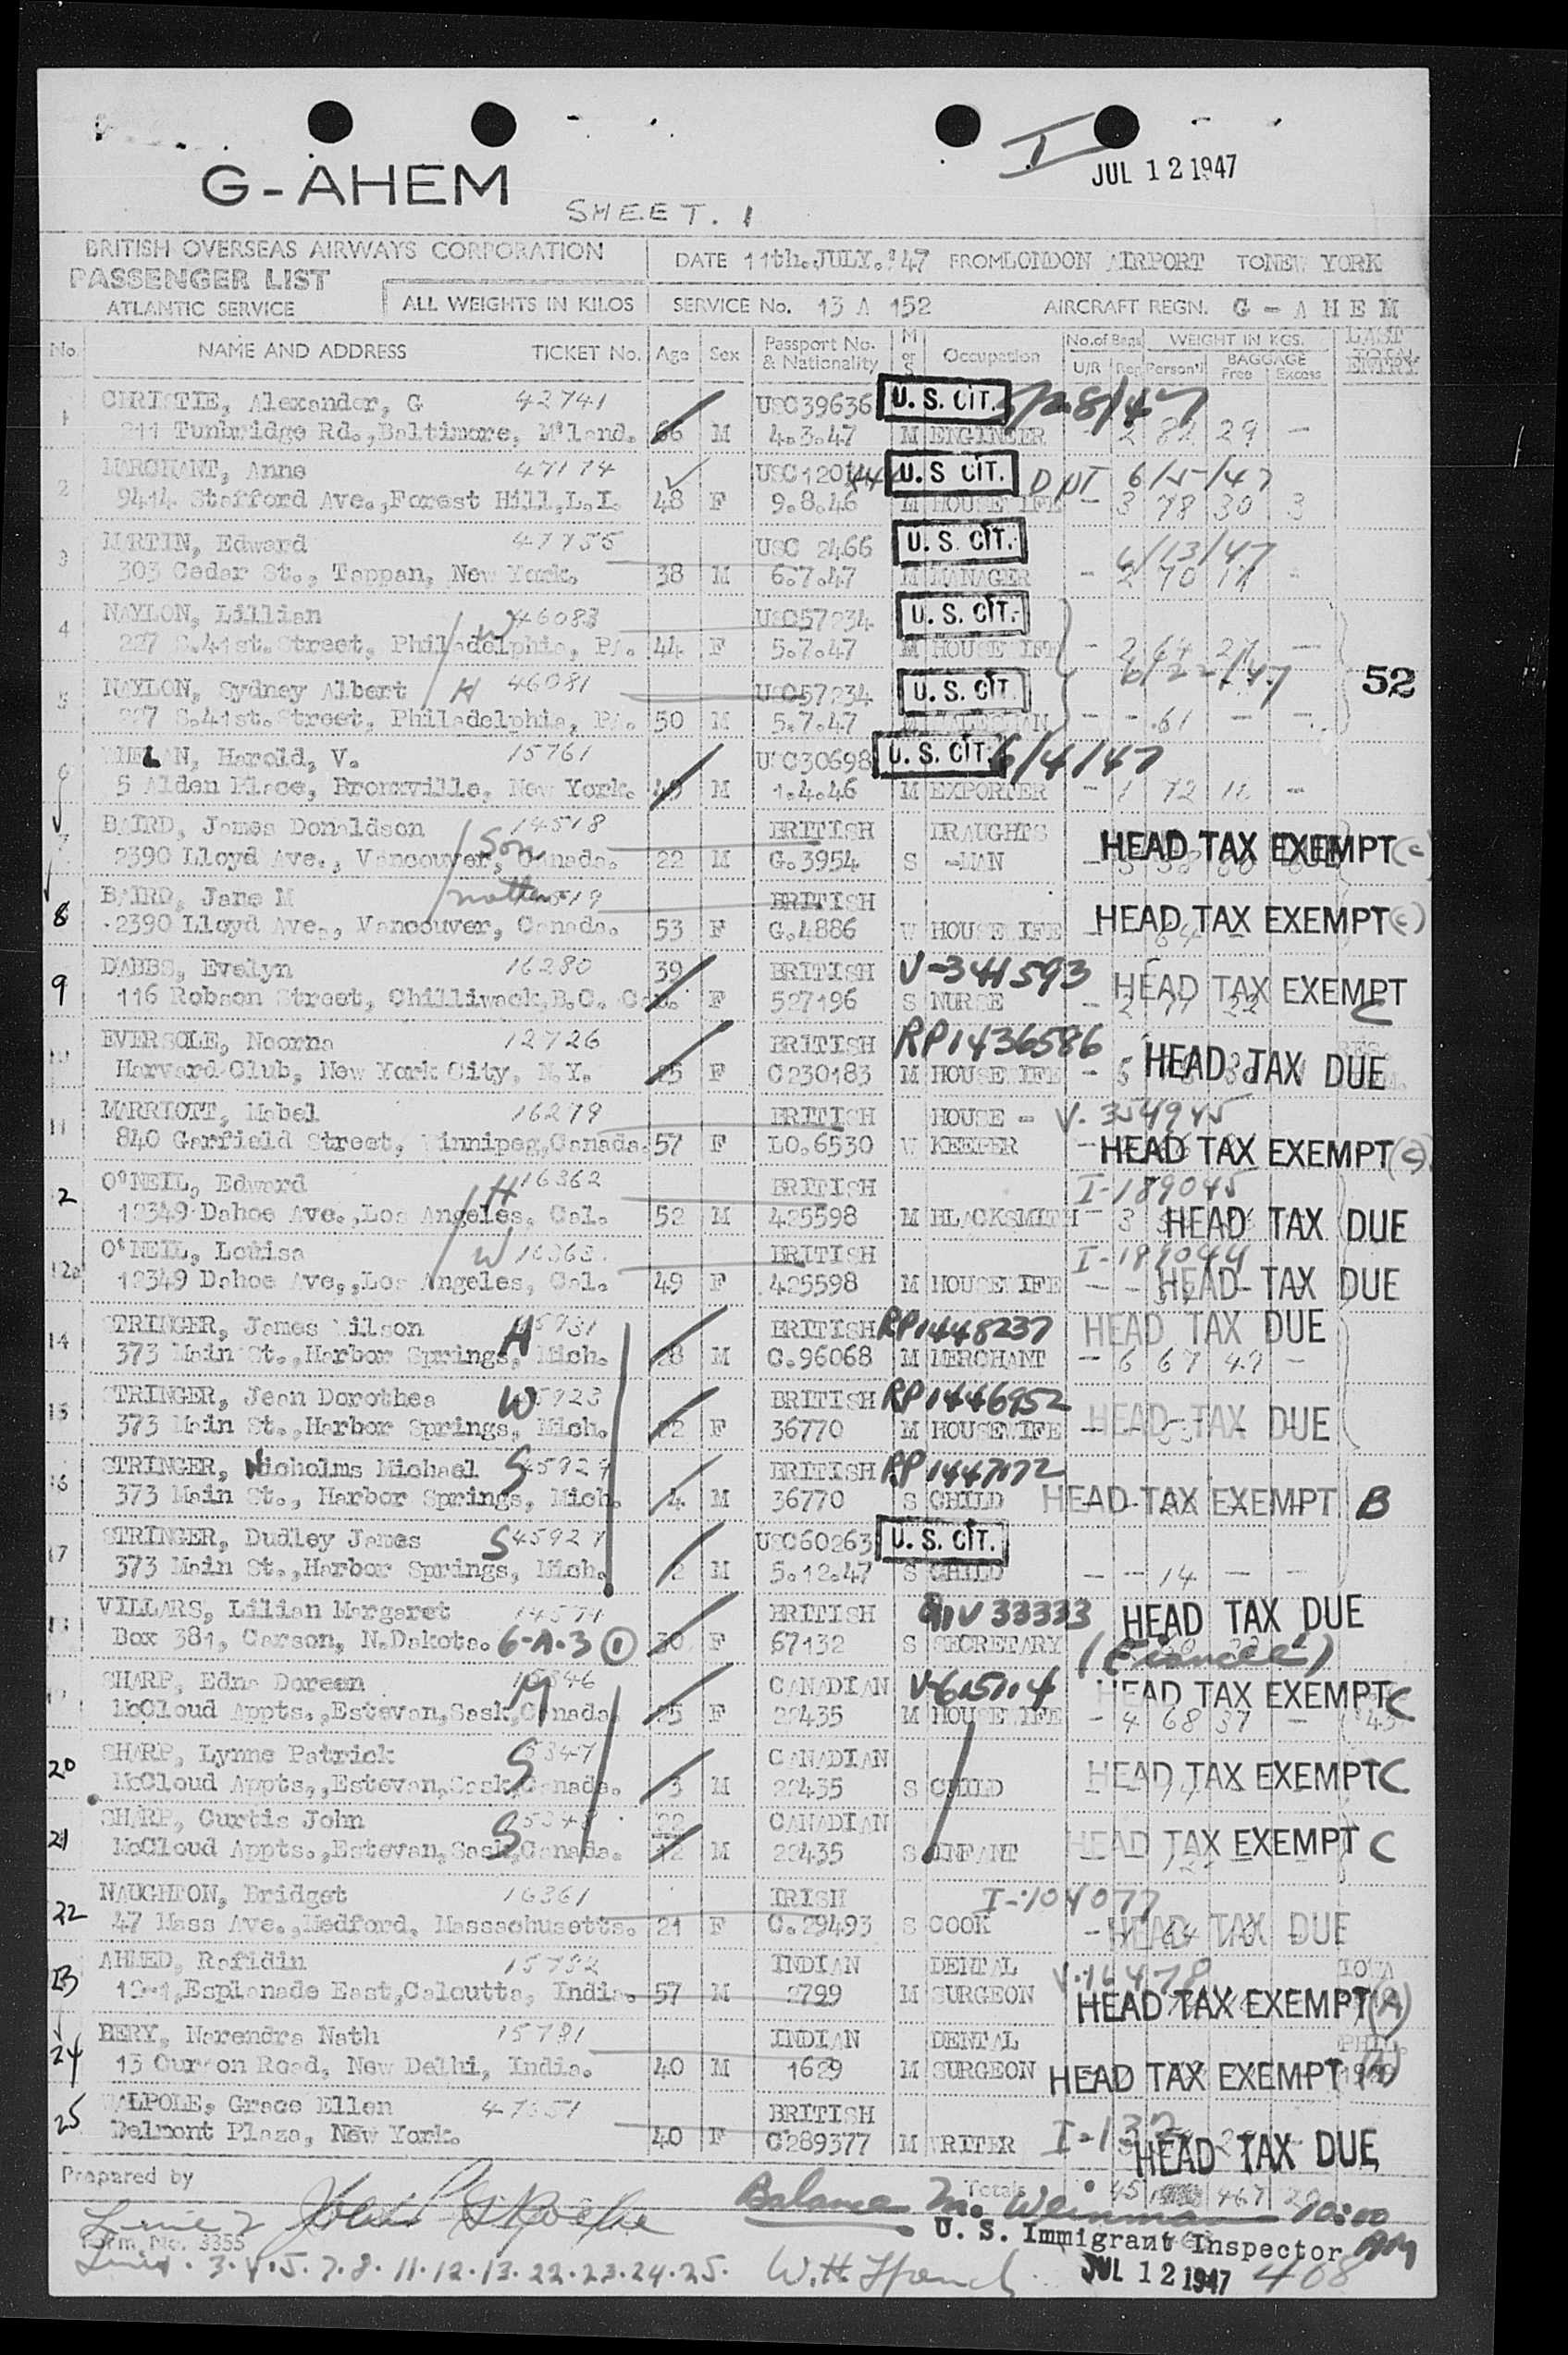 I
JUL 12 1947
G-AHEM
SHEET. 1
BRITISH OVERSEAS AIRWAYS CORPORATION
PASSENGER LIST
ATLANTIC SERVICE
ALL WEIGHTS IN KILOS
DATE 11th.JULY.'47 FROM LONDON AIRPORT TO NEW YORK
SERVICE No. 13 A 152 AIRCRAFT REGN. G - A H E M
No. NAME AND ADDRESS TICKET No. Age Sex Passport No. & Nationality M or S Occupation No. of Bags U/R Reg WEIGHT IN KGS. Person'l BAGGAGE Free Excess LAST TOTAL ENTRY
1 CHRISTIE, Alexander, G 42741 USC39636 U. S. CIT.
211 Tunbridge Rd.,Baltimore, M'land. 66 M 4.3.47 M ENGINEER 2 82 29 -
2 MARCHANT, Anne 47174 U. S. CIT. 6/5/47
9414 Stafford Ave.,Forest Hill,L.I. 48 F 9.8.46 M HOUSEWIFE - 3 78 30 3
3 MARTIN, Edward USC 2466 U. S. CIT. 6/13/47
303 Cedar St., Tappan, New York. 38 M 6.7.47 M MANAGER
4 NAYLON, Lillian W 46083 USC57234 U. S. CIT.
227 S.41st.Street, Philadelphia, PA. 44 F 5.7.47 M HOUSEWIFE
5 NAYLON, Sydney Albert H 46081 USC57234 U. S. CIT. 52
227 S.41st.Street, Philadelphia, PA. 50 M 5.7.47 M SALESMAN - - 61 - -
6 WHELAN, Harold, V. 15761 USC30698 U. S. CIT. 6/4/47
5 Alden Place, Bronxville, New York. M 1.4.46 M EXPORTER - 1 72
7 BAIRD, James Donaldson Son 14518 BRITISH DRAUGHTS HEAD TAX EXEMPT (c)
2390 Lloyd Ave., Vancouver, Canada. 22 M G.3954 S -MAN
8 BAIRD, Jane M mother BRITISH HEAD TAX EXEMPT (c)
2390 Lloyd Ave., Vancouver, Canada. 53 F G.4886 W HOUSEWIFE
9 DABBS, Evelyn 16280 39 BRITISH V-341593 HEAD TAX EXEMPT C
116 Robson Street, Chilliwack,B.C. Can. F 527196 S NURSE
10 EVERSOLE, Noorna 12726 BRITISH RP1436586 HEAD TAX DUE
Harvard Club, New York City, N.Y. F C230183 M HOUSEWIFE
11 MARRIOTT, Mabel 16279 BRITISH HOUSE - V. 354945
840 Garfield Street, Winnipeg,Canada. 57 F LO.6530 W KEEPER HEAD TAX EXEMPT (c)
12 O'NEIL, Edward H 16362 BRITISH I-189045
12349 Dahoe Ave.,Los Angeles, Cal. 52 M 425598 M BLACKSMITH - 3 HEAD TAX DUE
12a O'NEIL, Louisa W 16363 BRITISH I-189044
12349 Dahoe Ave.,Los Angeles, Cal. 49 F 425598 M HOUSEWIFE HEAD TAX DUE
14 STRINGER, James Wilson H BRITISH RP1448237 HEAD TAX DUE
373 Main St.,Harbor Springs, Mich. 28 M C.96068 M MERCHANT - 6 67 49 -
15 STRINGER, Jean Dorothea W BRITISH RP1446952 HEAD TAX DUE
373 Main St.,Harbor Springs, Mich. 22 F 36770 M HOUSEWIFE
16 STRINGER, Nicholms Michael S 45929 BRITISH RP1447172
373 Main St., Harbor Springs, Mich. 4 M 36770 S CHILD HEAD TAX EXEMPT B
17 STRINGER, Dudley James S 45927 USC60263 U. S. CIT.
373 Main St.,Harbor Springs, Mich. 2 M 5.12.47 S CHILD - - 14 - -
VILLARS, Lilian Margaret BRITISH V 33333 HEAD TAX DUE
Box 381, Carson, N.Dakota. 6-A-3 (1) 30 F 67132 S SECRETARY (Fiancee)
SHARP, Edna Doreen M CANADIAN HEAD TAX EXEMPT C
McCloud Appts.,Estevan,Sask,Canada. 25 F 22435 M HOUSEWIFE - 4 68 37 -
20 SHARP, Lynne Patrick S CANADIAN HEAD TAX EXEMPT C
McCloud Appts.,Estevan,Sask,Canada. 3 M 22435 S CHILD
21 SHARP, Curtis John S CANADIAN HEAD TAX EXEMPT C
McCloud Appts.,Estevan,Sask,Canada. M 22435 S INFANT
22 NAUGHTON, Bridget 16361 IRISH I-104077
47 Mass Ave.,Medford, Massachusetts. 21 F C.29493 S COOK HEAD TAX DUE
23 AHMED, Rafidin 15732 INDIAN DENTAL
12-1,Esplanade East,Calcutta, India. 57 M 2799 M SURGEON HEAD TAX EXEMPT (A)
24 BERY, Narendra Nath INDIAN DENTAL PHIL.
13 Curzon Road, New Delhi, India. 40 M 1629 M SURGEON HEAD TAX EXEMPT (A)
25 WALPOLE, Grace Ellen BRITISH
Belmont Plaza, New York. 40 F C289377 M WRITER HEAD TAX DUE
Prepared by Totals 45 467
Balance M. Weinman 10:00 AM
Form No. 3355 U. S. Immigrant Inspector
Lines . 3.4.5.7.8.11.12.13.22.23.24.25. JUL 12 1947 468